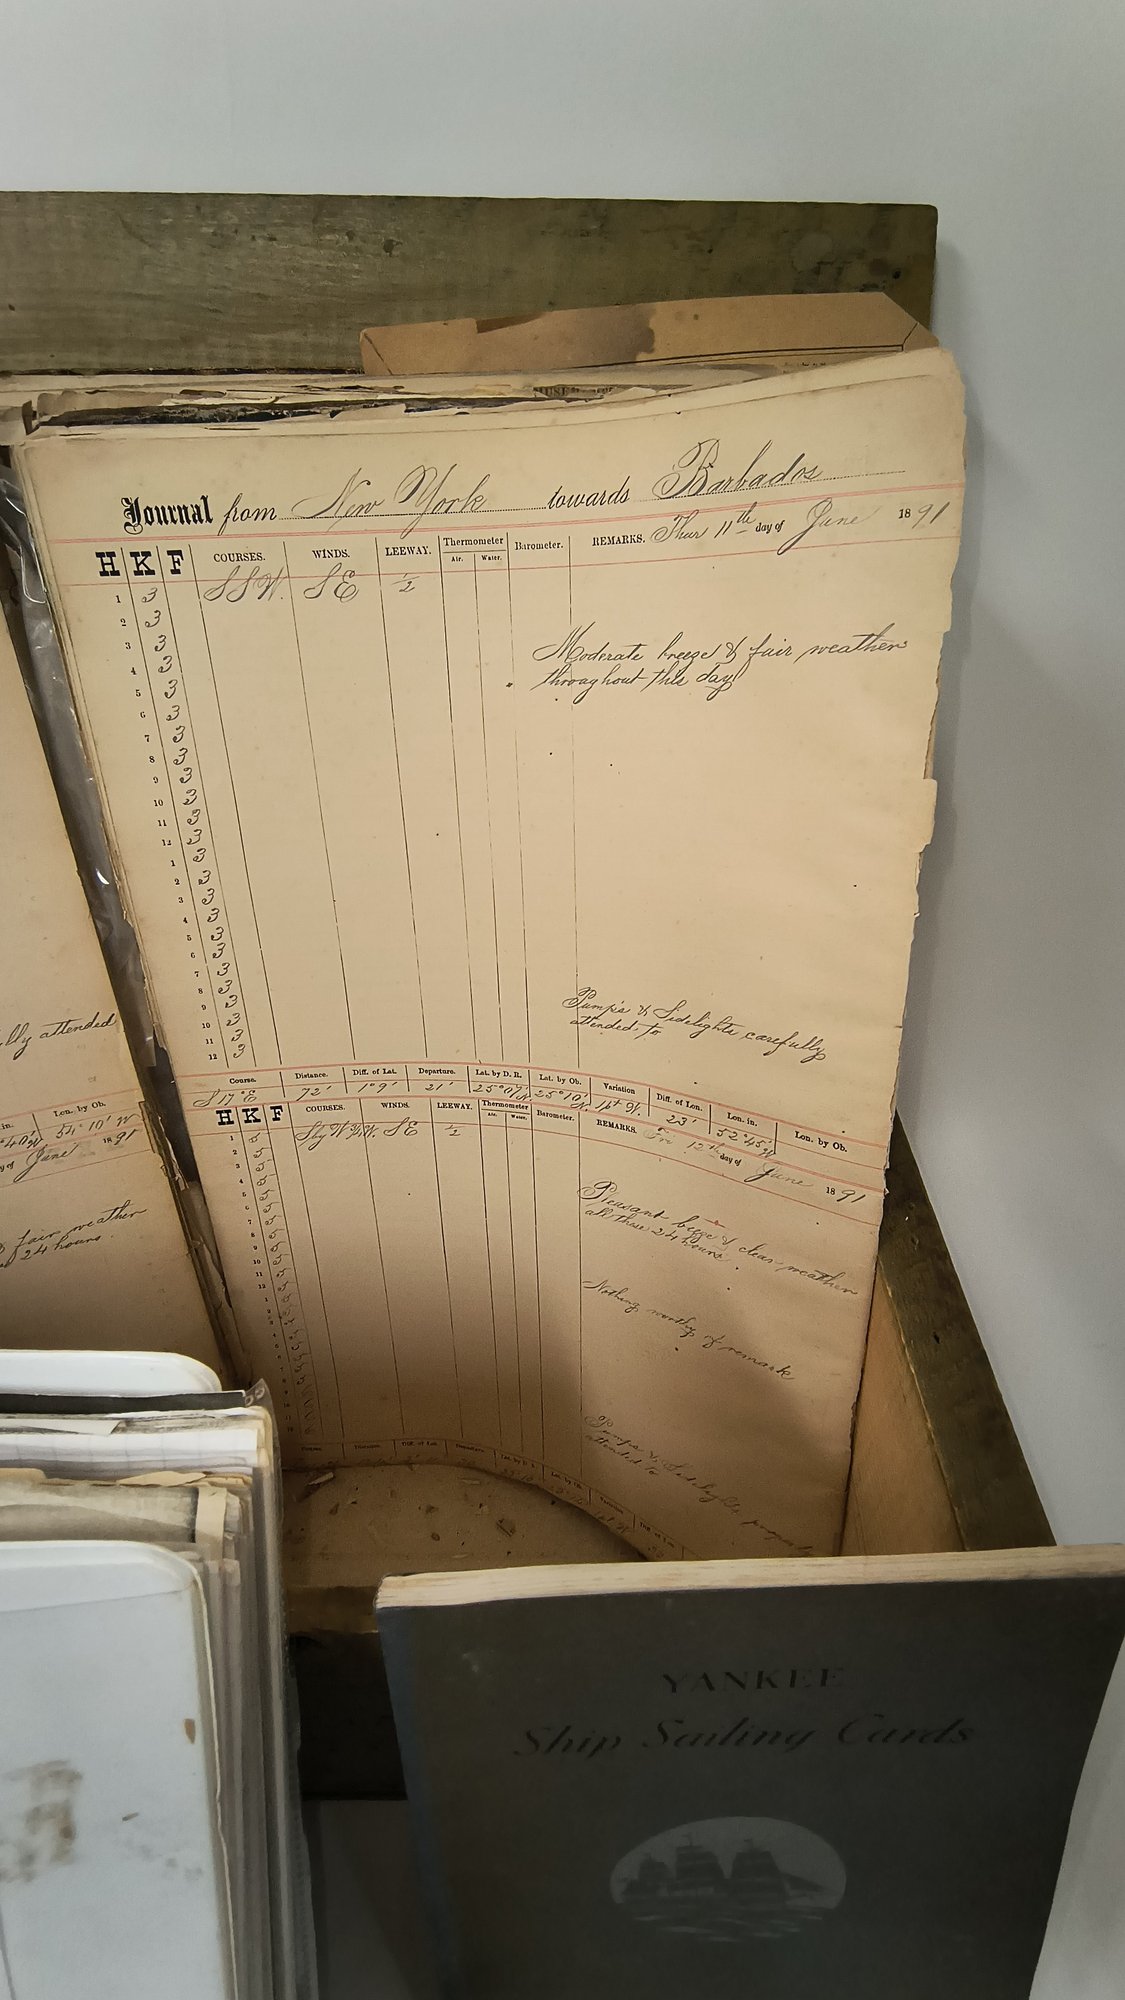 Journal from New York towards Barbados
H K F COURSES. WINDS. LEEWAY. Thermometer Air. Water. Barometer. REMARKS. Thur 11th day of June 1891
1 3 SSW. SE ½
2 3
3 3
4 3
5 3
6 3
7 3
8 3
9 3
10 3
11 3
12 3
1 3
2 3
3 3
4 3
5 3
6 3
7 3
8 3
9 3
10 3
11 3
12 3
Moderate breeze & fair weather
throughout this day
Pumps & Sidelights carefully
attended to
Course. Distance. Diff. of Lat. Departure. Lat. by D. R. Lat. by Ob. Variation Diff. of Lon. Lon. in. Lon. by Ob.
S 17° E 72' 1° 9' 21' 25° 07' N 25° 10' N. 1pt W. 23' 52° 45' W
H K F COURSES. WINDS. LEEWAY. Thermometer Air. Water. Barometer. REMARKS. Fri 12th day of June 1891
SE ½
Pleasant breeze & clear weather
all these 24 hours.
Nothing worthy of remark
Pumps & Sidelights properly
attended to
Course. Distance. Diff. of Lat. Departure. Lat. by D. R. Lat. by Ob. Variation Diff. of Lon.
attended
in. Lon. by Ob.
54° 10' W
of June 1891
fair weather
24 hours.
YANKEE
Ship Sailing Cards